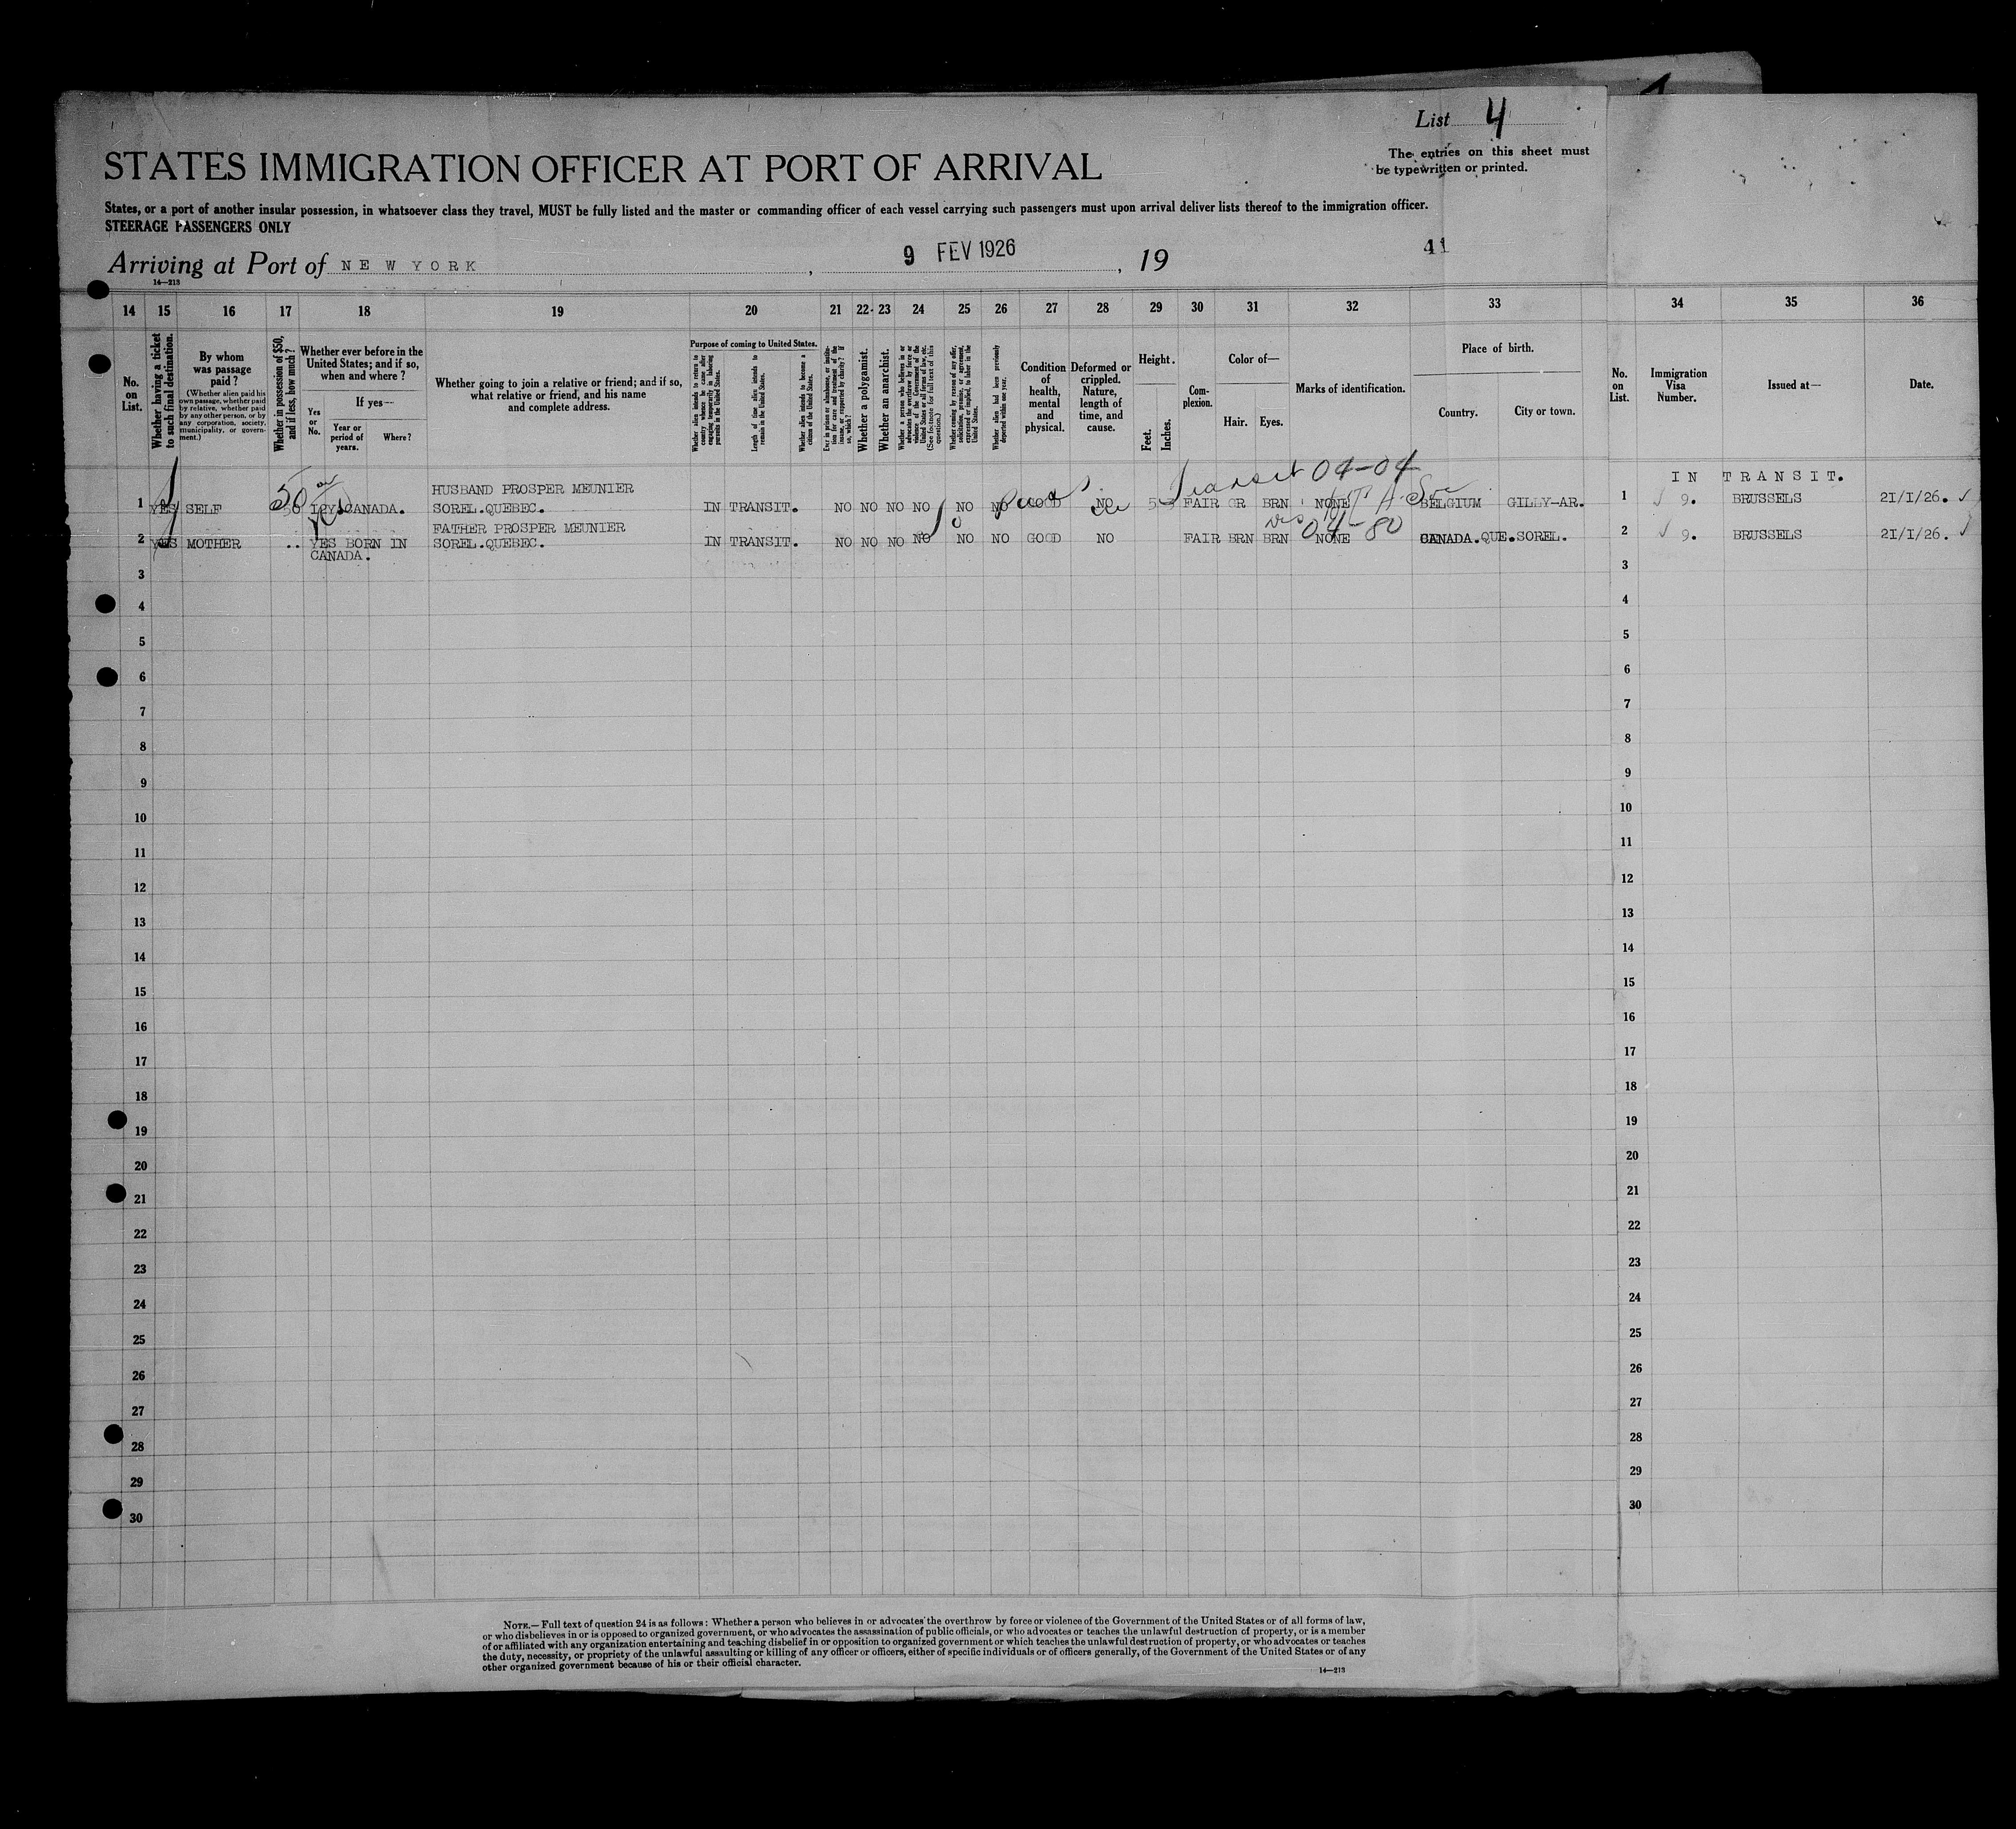 List 4
The entries on this sheet must
be typewritten or printed.
STATES IMMIGRATION OFFICER AT PORT OF ARRIVAL
States, or a port of another insular possession, in whatsoever class they travel, MUST be fully listed and the master or commanding officer of each vessel carrying such passengers must upon arrival deliver lists thereof to the immigration officer.
STEERAGE PASSENGERS ONLY
Arriving at Port of NEW YORK, 9 FEV 1926, 19
41
14—213
14 15 16 17 18 19 20 21 22 23 24 25 26 27 28 29 30 31 32 33 34 35 36
No. on List.
Whether having a ticket to such final destination.
By whom was passage paid?
(Whether alien paid his own passage, whether paid by relative, whether paid by any other person, or by any corporation, society, municipality, or government.)
Whether in possession of $50, and if less, how much?
Whether ever before in the United States; and if so, when and where?
Yes or No.
If yes—
Year or period of years.
Where?
Whether going to join a relative or friend; and if so, what relative or friend, and his name and complete address.
Purpose of coming to United States.
Whether alien intends to return to country whence he came after engaging temporarily in laboring pursuits in the United States.
Length of time alien intends to remain in the United States.
Whether alien intends to become a citizen of the United States.
Ever in prison or almshouse, or institution for care and treatment of the insane, or supported by charity? If so, which?
Whether a polygamist.
Whether an anarchist.
Whether a person who believes in or advocates the overthrow by force or violence of the Government of the United States or all forms of law, etc. (See footnote for full text of this question.)
Whether coming by reason of any offer, solicitation, promise, or agreement, expressed or implied, to labor in the United States.
Whether alien had been previously deported within one year.
Condition of health, mental and physical.
Deformed or crippled. Nature, length of time, and cause.
Height.
Feet. Inches.
Complexion.
Color of—
Hair. Eyes.
Marks of identification.
Place of birth.
Country. City or town.
No. on List.
Immigration Visa Number.
Issued at—
Date.
Transit 04-04
IN TRANSIT.
HUSBAND PROSPER MEUNIER
1 YES SELF 50 CANADA. SOREL.QUEBEC. IN TRANSIT. NO NO NO NO NO NO GOOD NO 5 FAIR GR BRN NONE BELGIUM GILLY-AR. 1 9. BRUSSELS 21/1/26.
FATHER PROSPER MEUNIER
04-80
2 YES MOTHER .. YES BORN IN SOREL.QUEBEC. IN TRANSIT. NO NO NO NO NO NO GOOD NO FAIR BRN BRN NONE CANADA.QUE.SOREL. 2 9. BRUSSELS 21/1/26.
CANADA.
3 3
4 4
5 5
6 6
7 7
8 8
9 9
10 10
11 11
12 12
13 13
14 14
15 15
16 16
17 17
18 18
19 19
20 20
21 21
22 22
23 23
24 24
25 25
26 26
27 27
28 28
29 29
30 30
NOTE.—Full text of question 24 is as follows: Whether a person who believes in or advocates the overthrow by force or violence of the Government of the United States or of all forms of law,
or who disbelieves in or is opposed to organized government, or who advocates the assassination of public officials, or who advocates or teaches the unlawful destruction of property, or is a member
of or affiliated with any organization entertaining and teaching disbelief in or opposition to organized government or which teaches the unlawful destruction of property, or who advocates or teaches
the duty, necessity, or propriety of the unlawful assaulting or killing of any officer or officers, either of specific individuals or of officers generally, of the Government of the United States or of any
other organized government because of his or their official character.
14—213